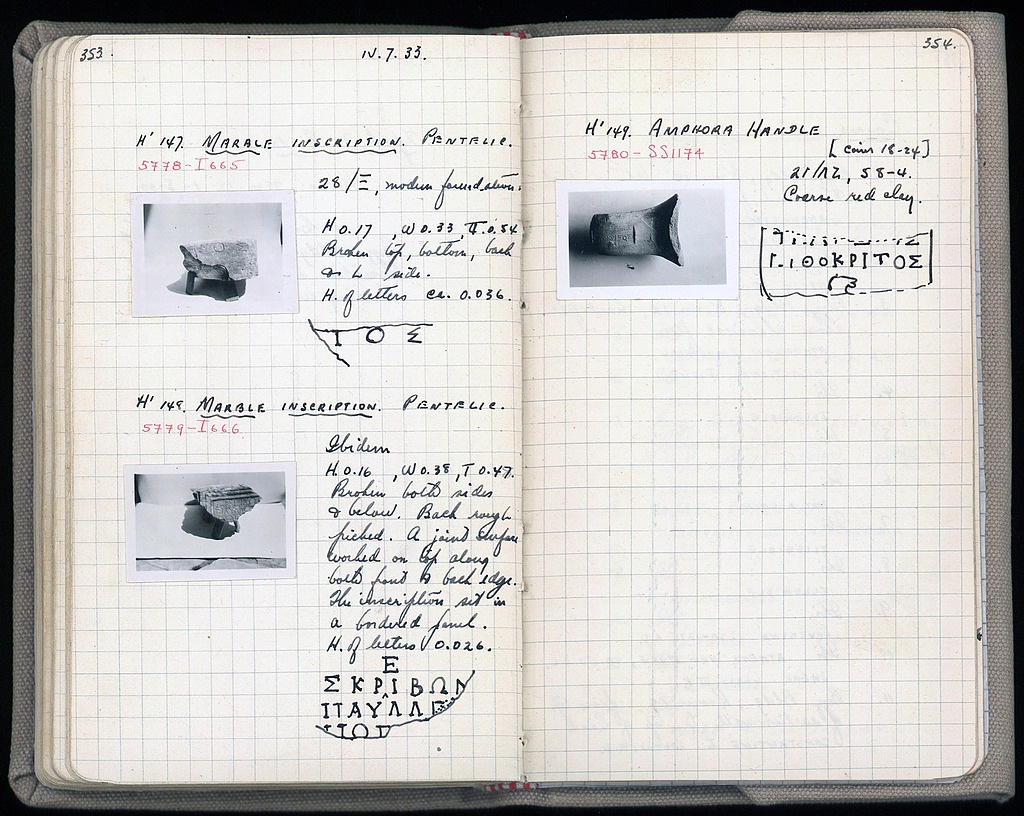 353.
IV. 7. 33.
H' 147. MARBLE INSCRIPTION. PENTELIC.
5778-I665
28/Ξ, modern foundation.
H 0.17, W 0.33, T 0.54
Broken top, bottom, back
& L side.
H. of letters ca. 0.036.
Ι Ο Σ
H' 148. MARBLE INSCRIPTION. PENTELIC.
5779-I666
Ibidem
H. 0.16, W 0.38, T 0.47.
Broken both sides
& below. Back rough
picked. A joint surface
worked on top along
both front & back edge.
The inscription set in
a bordered panel.
H. of letters 0.026.
Ε
Σ ΚΡΙΒΩΝ
ΠΑΥΛΛΕ
354.
H' 149. AMPHORA HANDLE
5780-SS1174
[Coins 18-24]
21/ΛΣ, 58-4.
Coarse red clay.
Γ.ΙΘΟΚΡΙΤΟΣ